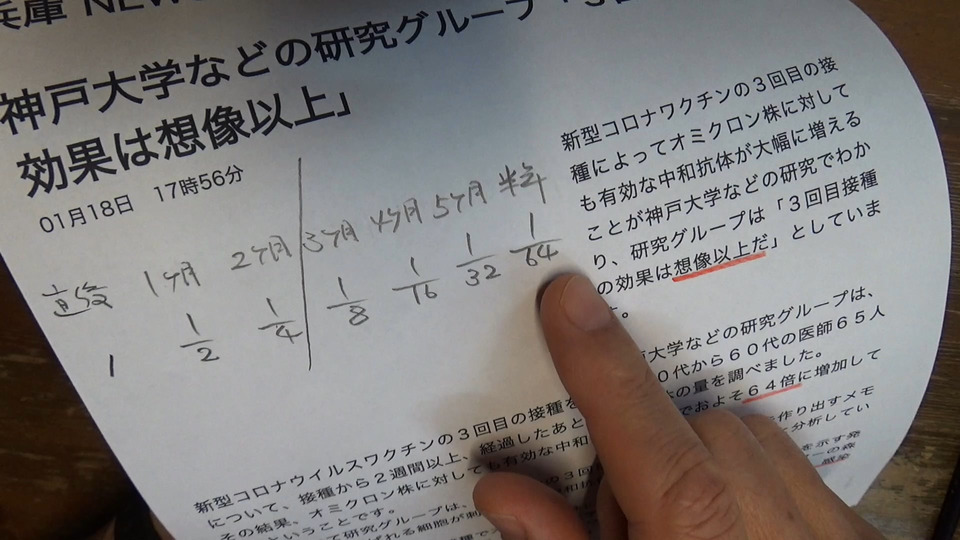 兵庫 NEWS
神戸大学などの研究グループ「3回
効果は想像以上」
01月18日 17時56分
直後 1ヶ月 2ヶ月 3ヶ月 4ヶ月 5ヶ月 半年
1 1/2 1/4 1/8 1/16 1/32 1/64
新型コロナワクチンの3回目の接
種によってオミクロン株に対して
も有効な中和抗体が大幅に増える
ことが神戸大学などの研究でわか
り、研究グループは「3回目接種
の効果は想像以上だ」としていま
す。
大学などの研究グループは、
0代から60代の医師65人
新型コロナウイルスワクチンの3回目の接種を
の量を調べました。
について、接種から2週間以上、経過したあと
その結果、オミクロン株に対しても有効な中和
でおよそ64倍に増加して
ということです。
を作り出すメモ
て研究グループは、
と分析してい
ばれる細胞が刺
を示す発
感染